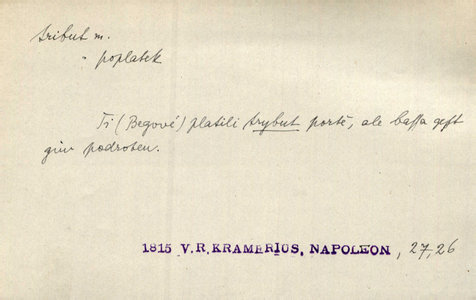 tribut m.
" poplatek
Ti (Begové) platili trybut portě, ale bassa gest
gim podroben.
1815 V.R.KRAMERIUS, NAPOLEON, 27,26